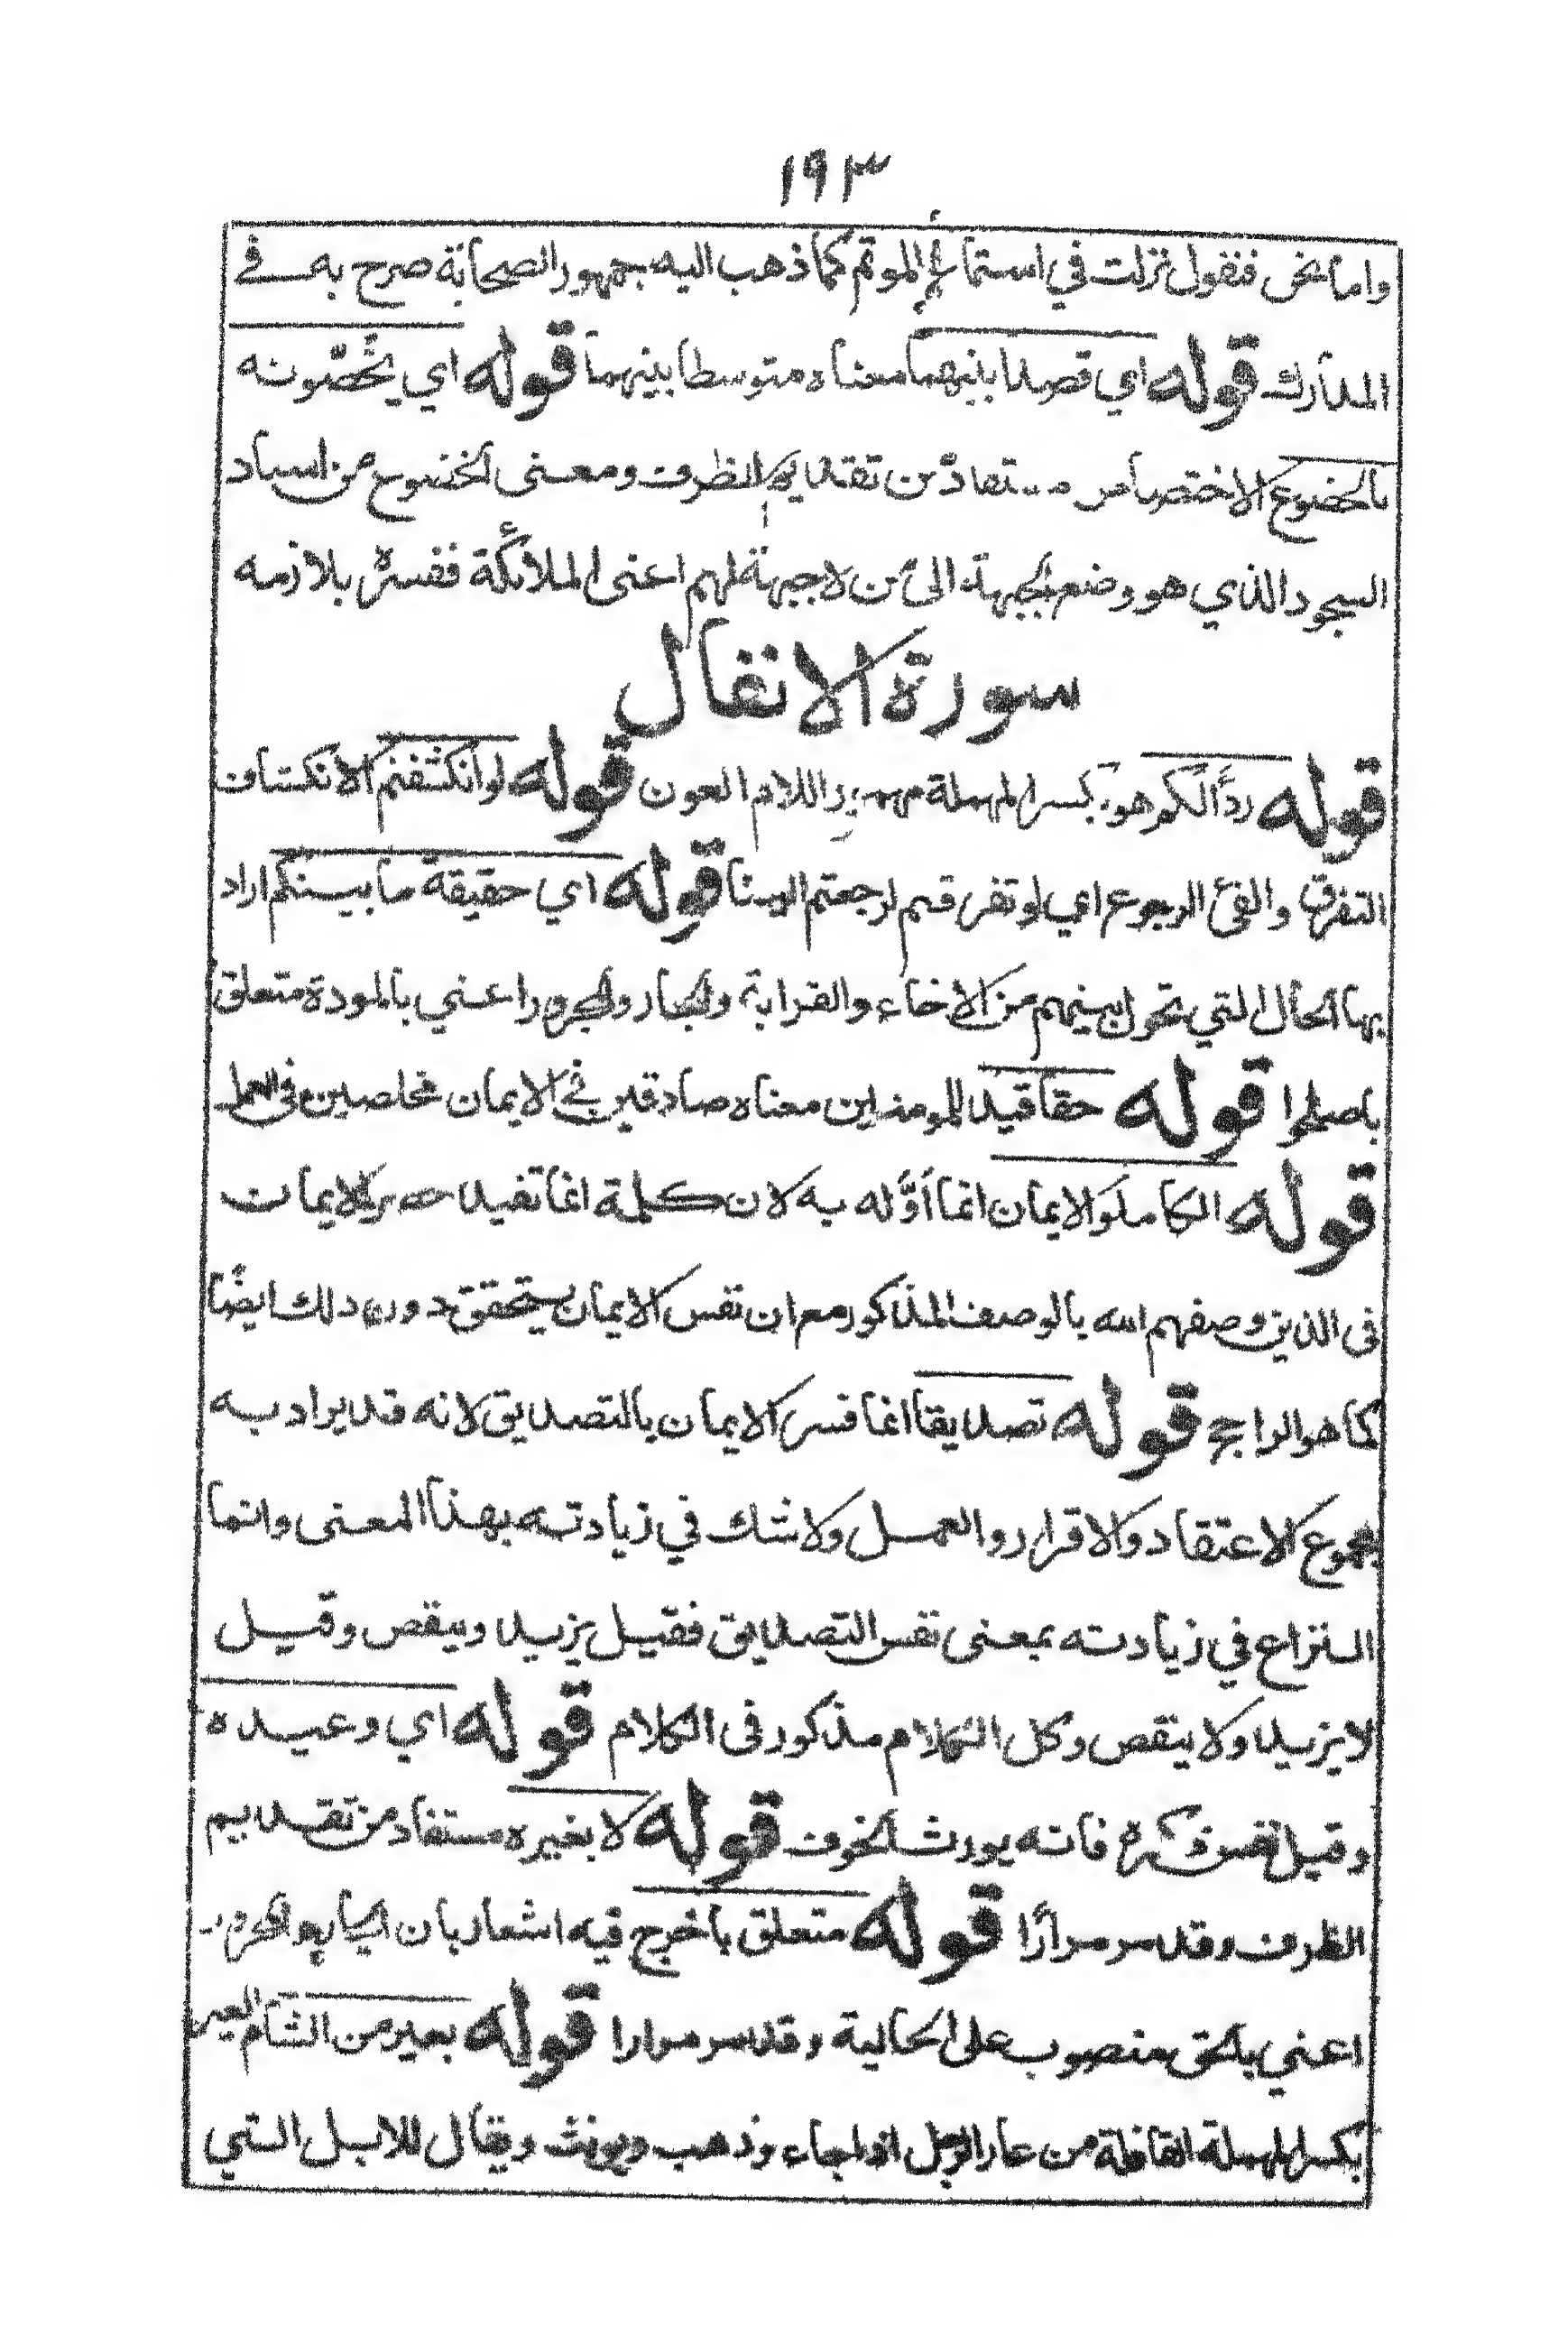 ١٩٣
واما نحن فنقول نزلت في استماع المؤتم كما ذهب اليه جمهور الصحابة صرح به في
المدارك قوله اي قصدا بينهما معناه متوسطا بينهما قوله اي يخصّونه
بالخضوع الاختصاص من تقديم الظرف ومعنى الخضوع من اسناد
السجود الذي هو وضع الجبهة الى من لا جبهة لهم اعنى الملائكة ففسره بلازمه
سورة الانفال
قوله ردأ لكم هو بكسر المهملة اللام العون قوله لو انكشفتم الانكشاف
التفرق والفئ الرجوع اي لو تفرقتم لرجعتم الينا قوله اي حقيقة ما بينكم اراد
بها الحال التي تحول بينهم من الاخاء والقرابة والجار والمجرور اعني بالمودة متعلق
باصلحوا قوله حقا قيد للمومنين معناه صادقين في الايمان مخلصين في العمل
قوله الكاملو الايمان انما اوّله به لان كلمة انما تفيد حصر الايمان
فى الذين وصفهم الله بالوصف المذكور مع ان نفس الايمان يتحقق دون ذلك ايضًا
كما هو الراجح قوله تصديقا انما فسر الايمان بالتصديق لانه قد يراد به
مجموع الاعتقاد والاقرار والعمل ولا شك في زيادته بهذا المعنى وانما
النزاع في زيادته بمعنى نفس التصديق فقيل يزيد وينقص وقيل
لا يزيد ولا ينقص وكل الكلام مذكور فى الكلام قوله اي وعيده
وقيل نفس ذكره فانه يورث الخوف قوله لا بغيره مستفاد من تقديم
الظرف وقد مر مرارًا قوله متعلق باخرج فيه اشعار بان الجار والمجرور
اعني بالحق منصوب على الحالية وقد مر مرارا قوله بعير من الشام العير
بكسر المهملة القافلة من عار الرجل اذا جاء وذهب ويونث ويقال للابل التي